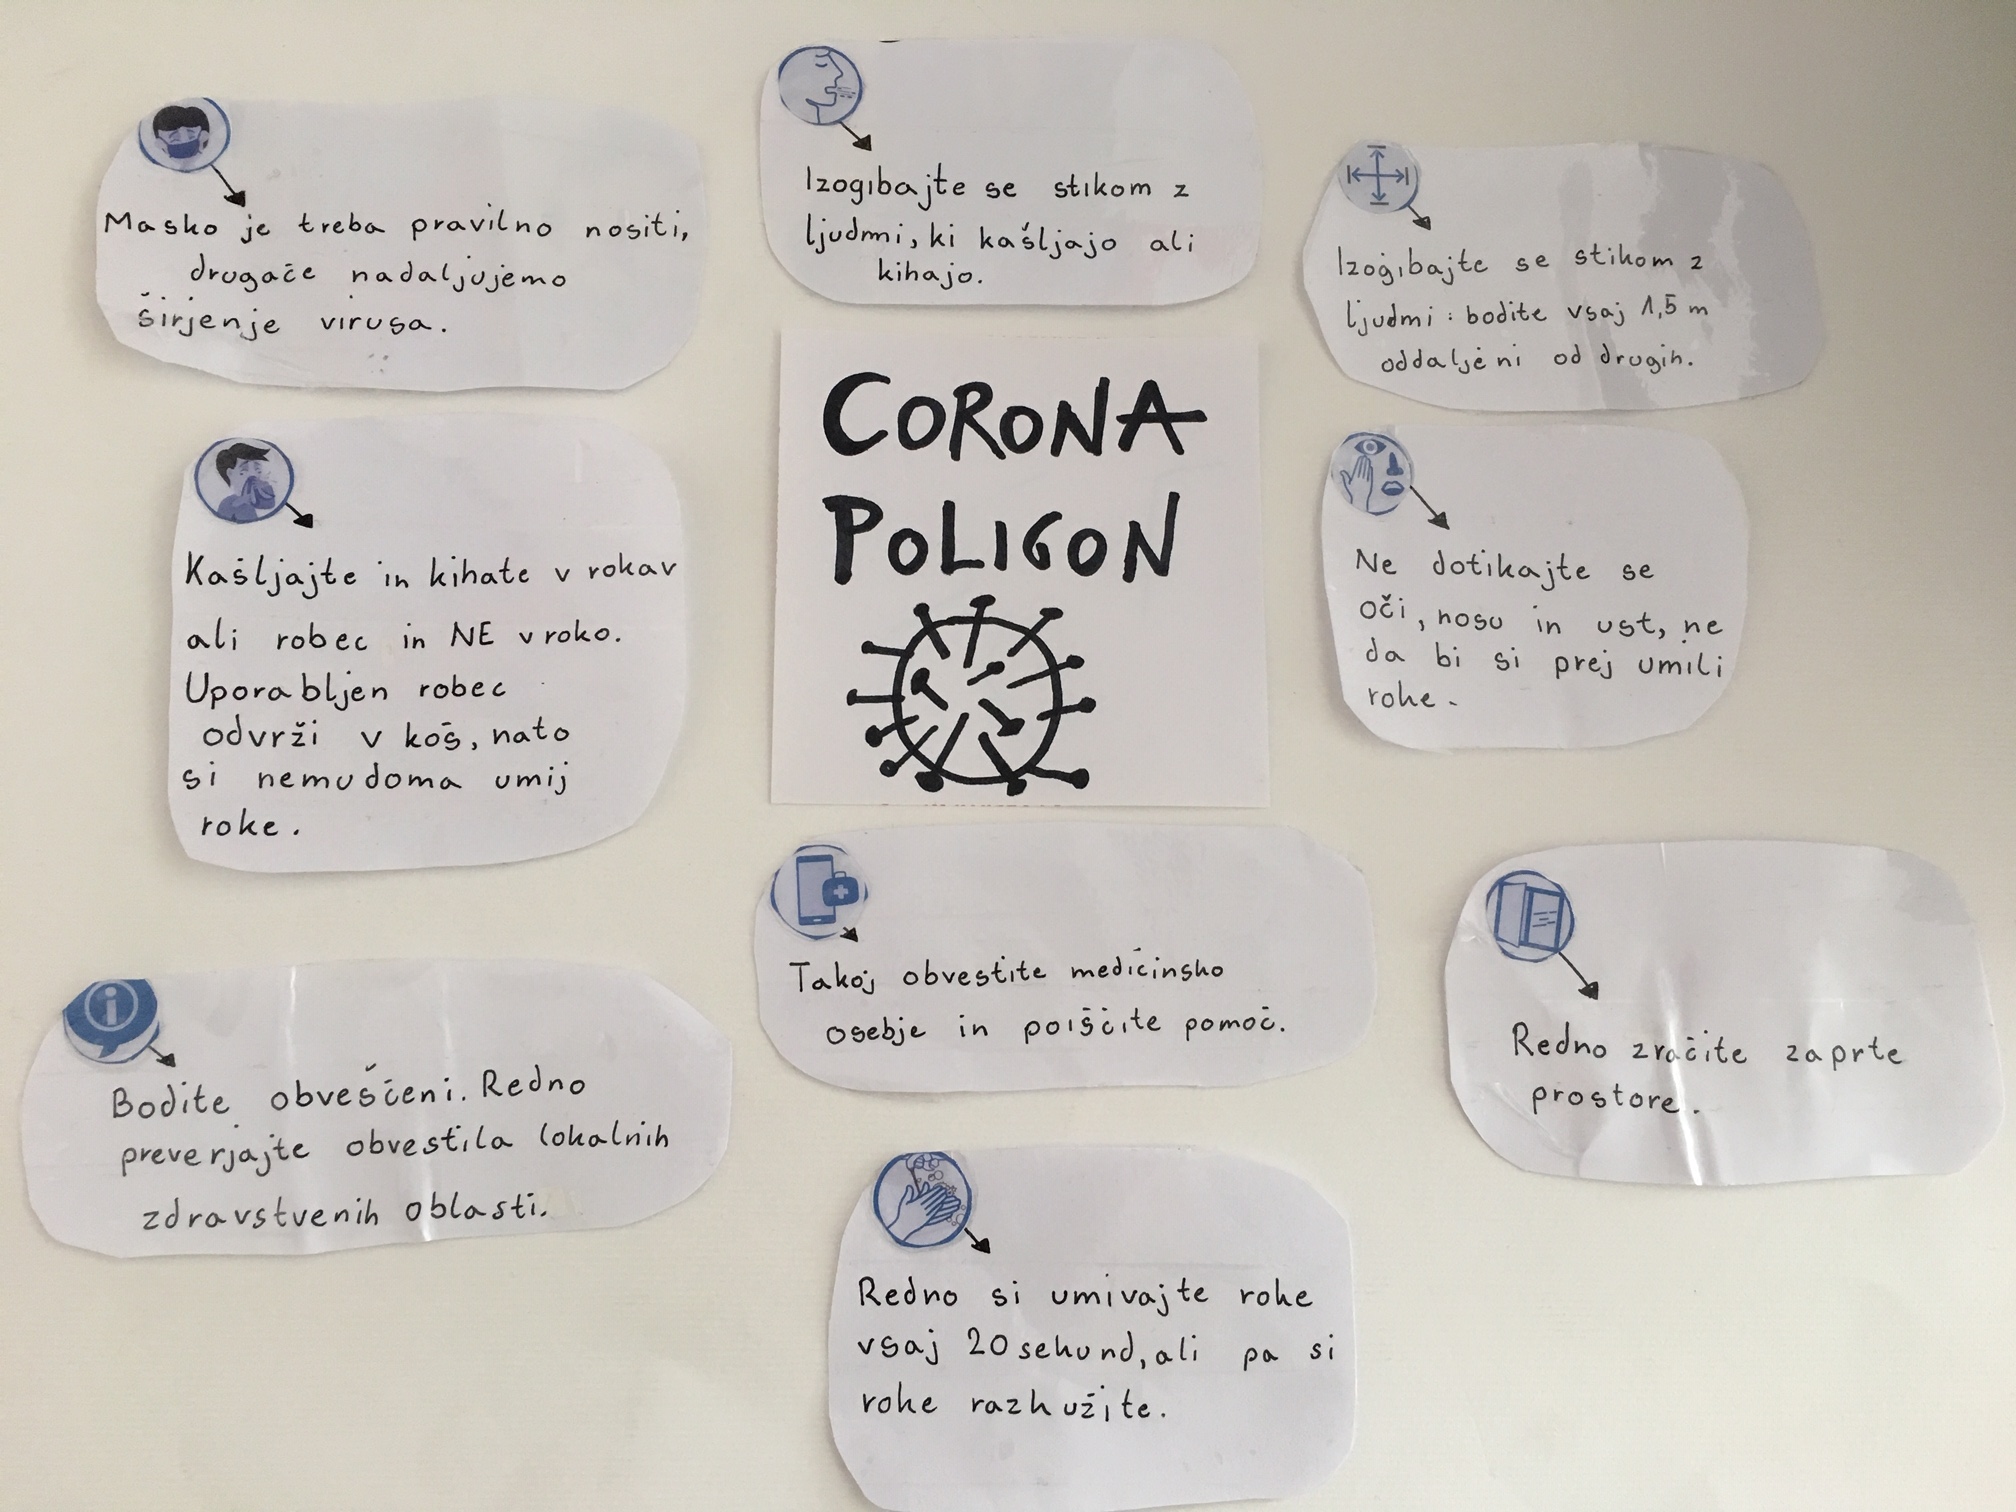 Masko je treba pravilno nositi,
drugače nadaljujemo
širjenje virusa.
Izogibajte se stikom z
ljudmi, ki kašljajo ali
kihajo.
Izogibajte se stikom z
ljudmi : bodite vsaj 1,5 m
oddaljeni od drugih.
CORONA
POLIGON
Kašljajte in kihate v rokav
ali robec in NE v roko.
Uporabljen robec
odvrži v koš, nato
si nemudoma umij
roke.
Ne dotikajte se
oči, nosu in ust, ne
da bi si prej umili
roke.
Takoj obvestite medicinsko
osebje in poiščite pomoč.
Redno zračite zaprte
prostore.
Bodite obveščeni. Redno
preverjajte obvestila lokalnih
zdravstvenih oblasti.
Redno si umivajte roke
vsaj 20 sekund, ali pa si
roke razkužite.